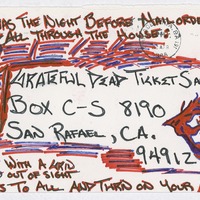 THE NIGHT BEFORE MAIL ORDER
ALL THROUGH THE HOUSE
GRATEFUL DEAD TICKET SA
BOX C-S 8190
SAN RAFAEL, CA.
94912
WITH A GRID
OUT OF SIGHT
TO ALL AND TURN ON YOUR